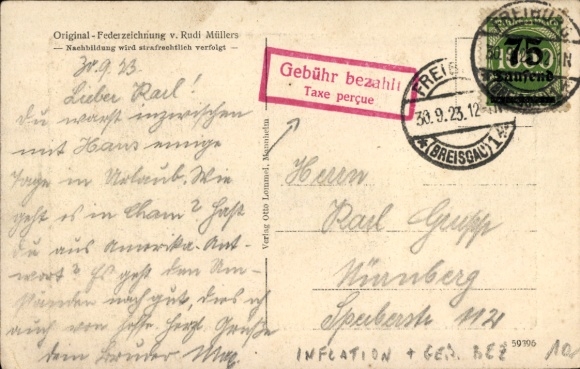 Original - Federzeichnung v. Rudi Müllers
— Nachbildung wird strafrechtlich verfolgt —
30.9.23
Lieber Karl!
Du warst inzwischen
mit Hans einige
Tage in Urlaub. Wie
geht es in Cham? Hast
du aus Amerika Ant-
wort? Es geht den Um-
ständen nach gut, dies ich
auch von hoffe. Herzl. Grüße
dem Bruder
Verlag Otto Lommel, Mannheim
Gebühr bezahlt
Taxe perçue
FREIBURG
30.9.23.12-
* (BREISGAU) 1
FREIBURG
75
Tausend
Herrn
Karl Grupp
Nürnberg
Speiberstr 112
59396
INFLATION + GEB. BEZ 10,-